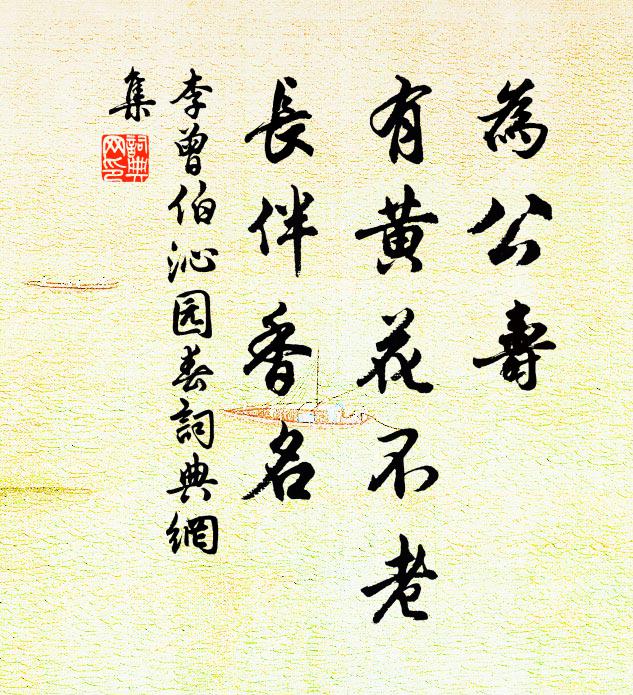 為公壽
有黄花不老
長伴香名
李曾伯沁园春詞典網
集
詞典
网印